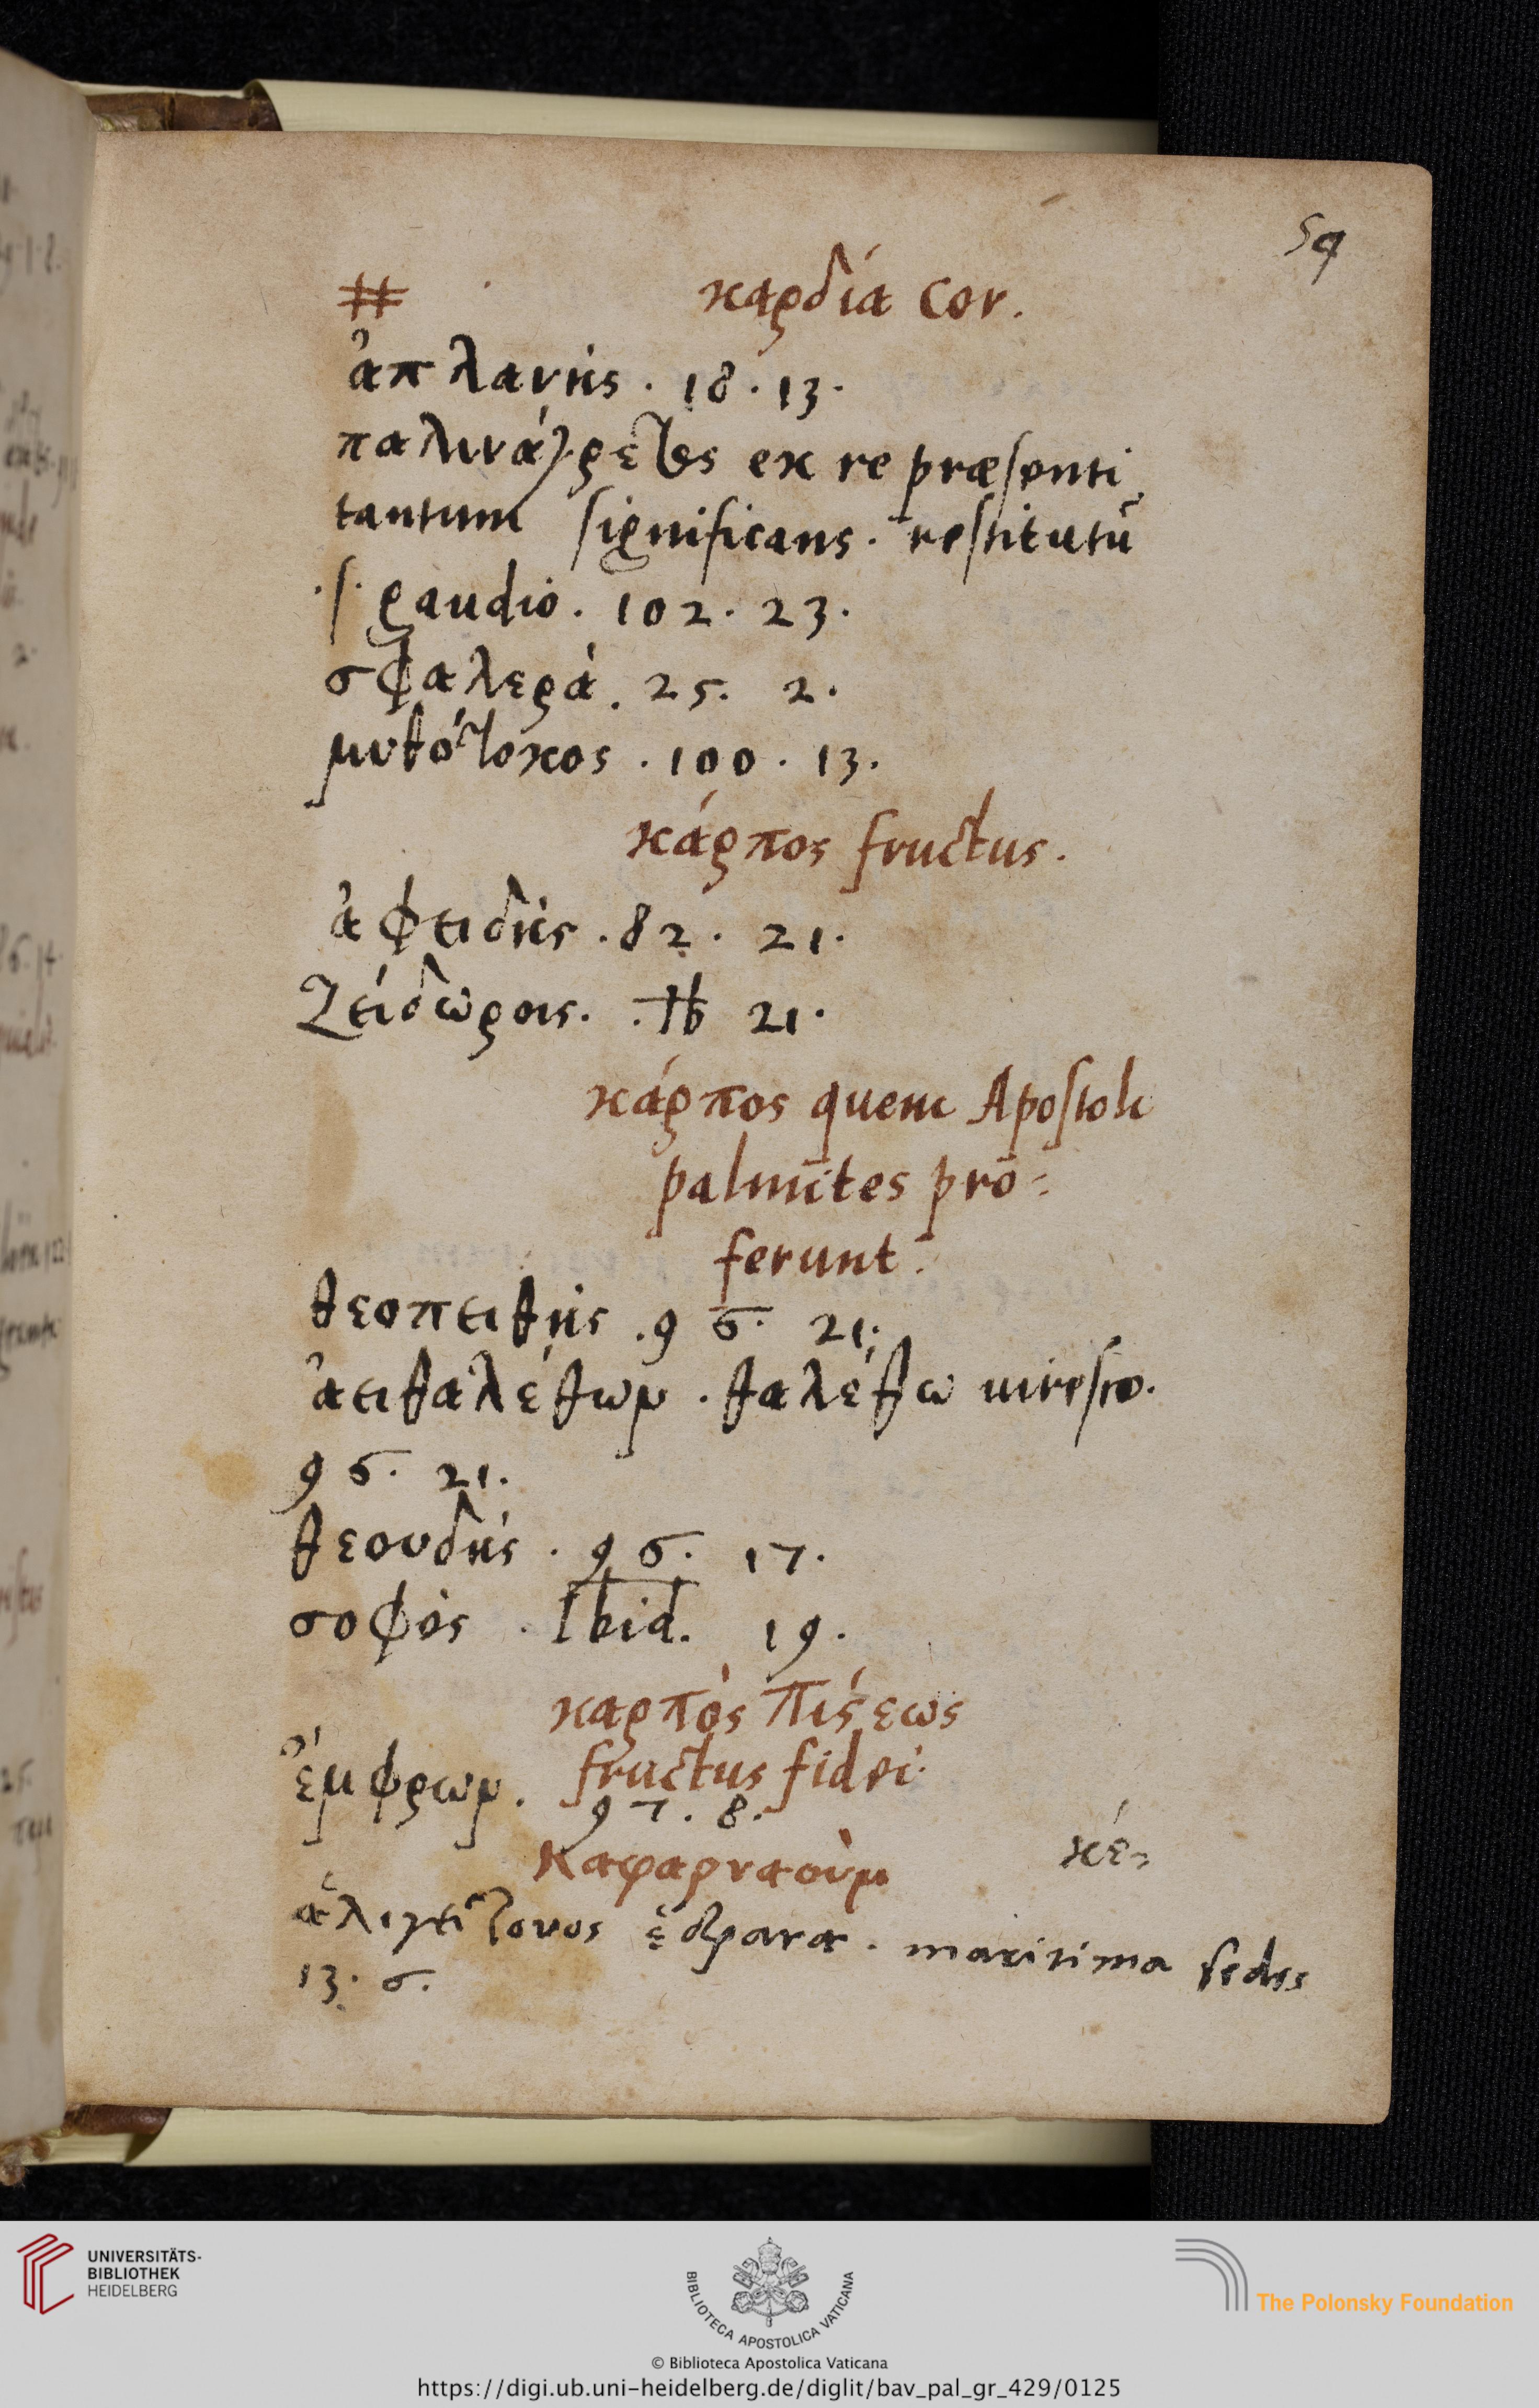 59
# καρδία cor.
ἀπλανὴς . 18 . 13 .
παλινάγρετος ex re præsenti
tantum significans . restitutū
.s. gaudio . 102 . 23 .
σφαλερὰ . 25 . 2 .
μυθότοκος . 100 . 13 .
κάρπος fructus .
ἀφειδὴς . 82 . 21 .
Ζείδωροις . . Ib 21 .
κάρπος quem Apostoli
palmites pro=
ferunt .
θεοπειθὴς . 96 . 21 .
ἀειθαλέθων . θαλέθω uiresco .
96 . 21 .
θεουδὴς . 96 . 17 .
σοφὸς . Ibid . 19 .
καρπὸς Πίστεως
ἔμφρων . fructus fidei .
97 . 8 .
Καφαρναοὺμ κέ=
ἁλιγείτονος ἕδρανα . maritima sedes
13 . 6 .
UNIVERSITÄTS-
BIBLIOTHEK
HEIDELBERG
BIBLIOTECA APOSTOLICA VATICANA
The Polonsky Foundation
© Biblioteca Apostolica Vaticana
https://digi.ub.uni-heidelberg.de/diglit/bav_pal_gr_429/0125